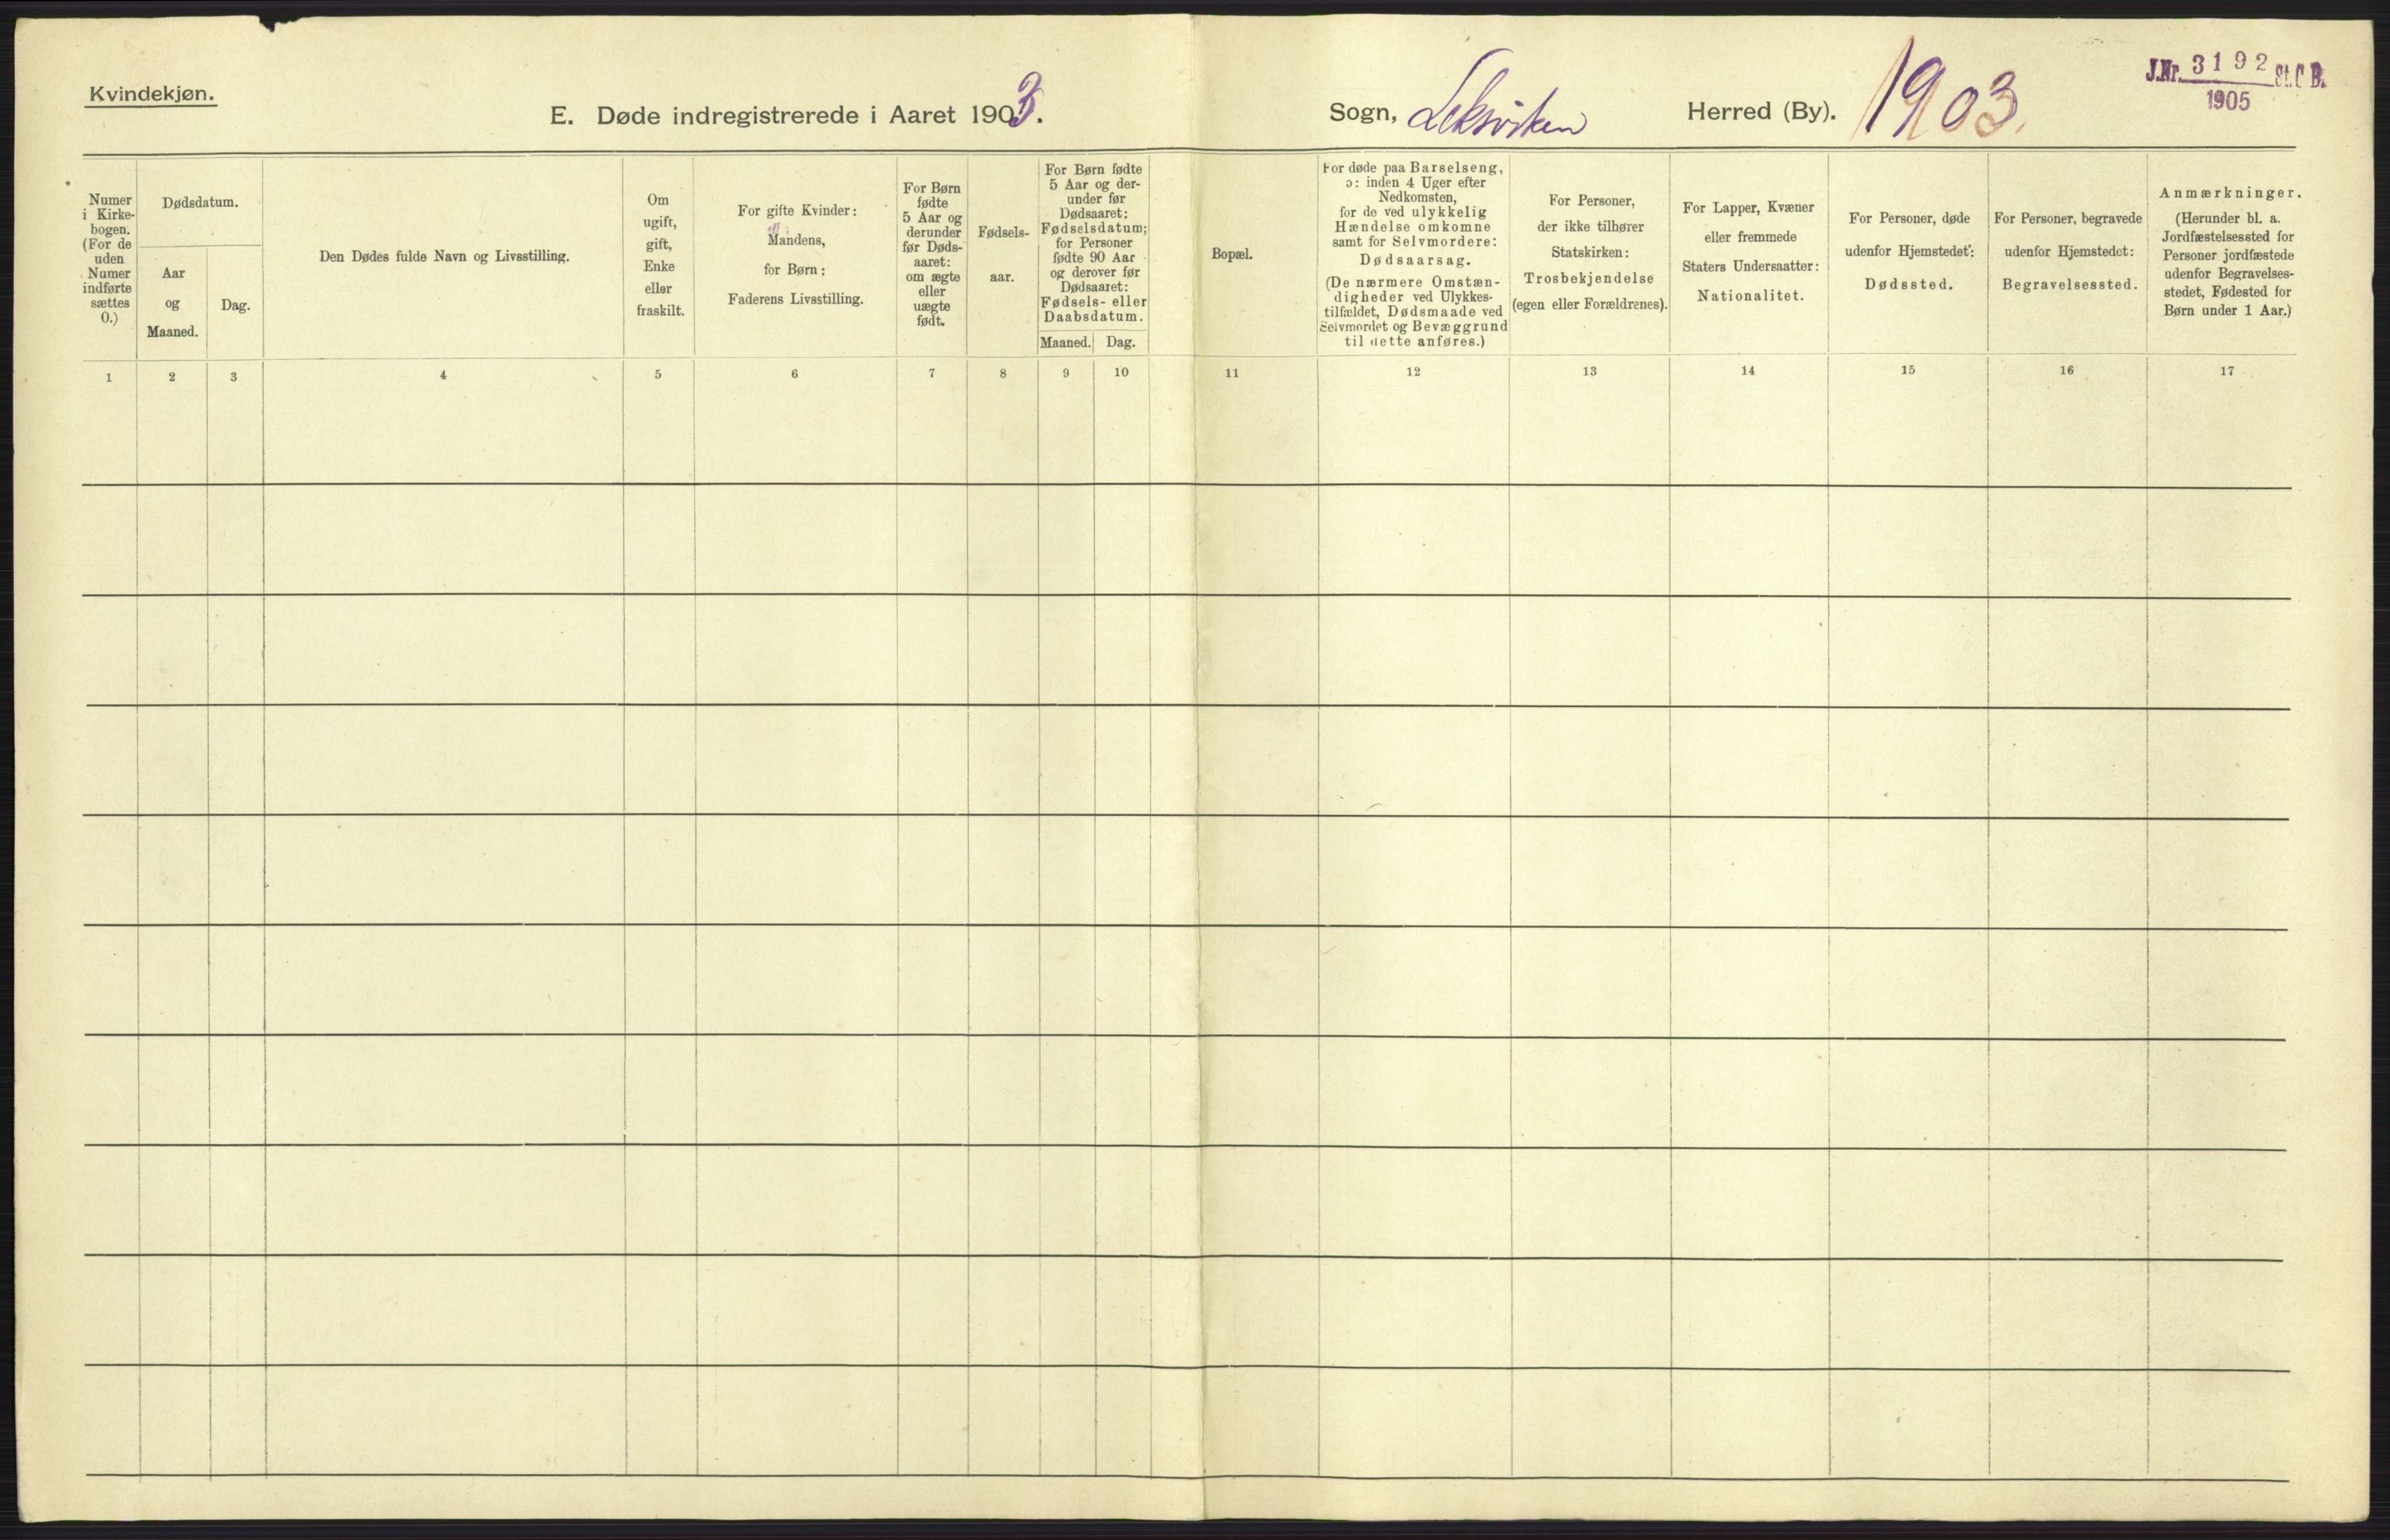 Kvindekjøn.
E. Døde indregistrerede i Aaret 1903.
Sogn, Leksviken Herred (By). 1903.
J.Nr. 3192 St. C B.
1905
Numer
i Kirke-
bogen.
(For de
uden
Numer
indførte
sættes
0.)
Dødsdatum.
Aar
og
Maaned.
Dag.
Den Dødes fulde Navn og Livsstilling.
Om
ugift,
gift,
Enke
eller
fraskilt.
For gifte Kvinder:
Mandens,
for Børn:
Faderens Livsstilling.
For Børn
fødte
5 Aar og
derunder
før Døds-
aaret:
om ægte
eller
uægte
født.
Fødsels-
aar.
For Børn fødte
5 Aar og der-
under før
Dødsaaret:
Fødselsdatum;
for Personer
fødte 90 Aar
og derover før
Dødsaaret:
Fødsels- eller
Daabsdatum.
Maaned. Dag.
Bopæl.
For døde paa Barselseng,
ɔ: inden 4 Uger efter
Nedkomsten,
for de ved ulykkelig
Hændelse omkomne
samt for Selvmordere:
Dødsaarsag.
(De nærmere Omstæn-
digheder ved Ulykkes-
tilfældet, Dødsmaade ved
Selvmordet og Bevæggrund
til dette anføres.)
For Personer,
der ikke tilhører
Statskirken:
Trosbekjendelse
(egen eller Forældrenes).
For Lapper, Kvæner
eller fremmede
Staters Undersaatter:
Nationalitet.
For Personer, døde
udenfor Hjemstedet:
Dødssted.
For Personer, begravede
udenfor Hjemstedet:
Begravelsessted.
Anmærkninger.
(Herunder bl. a.
Jordfæstelsessted for
Personer jordfæstede
udenfor Begravelses-
stedet, Fødested for
Børn under 1 Aar.)
1 2 3 4 5 6 7 8 9 10 11 12 13 14 15 16 17